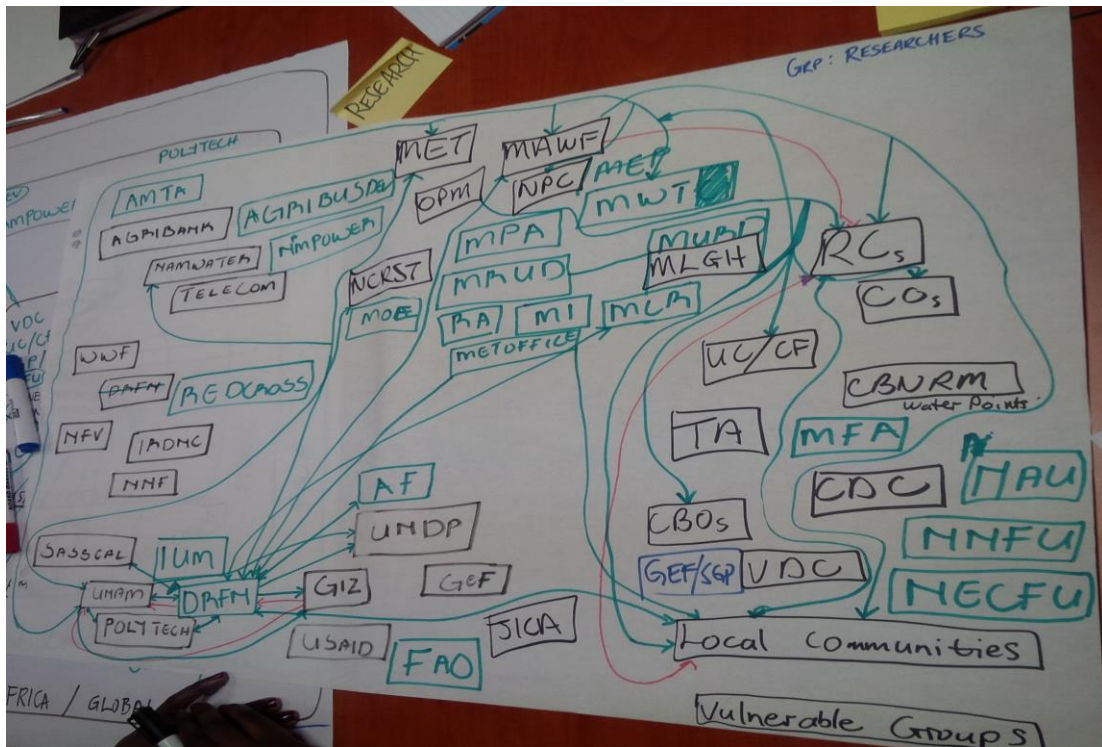 GRP: RESEARCHERS
RESEARCH
POLYTECH
AMTA
AGRIBANK
AGRIBUSDE
NAMWATER
NAMPOWER
TELECOM
MET
OPM
MAWF
NPC
MEP
MWT
MPA
MURD
MLGH
NCRST
MRUD
MOE
RA
MI
MCR
METOFFICE
RCs
COs
UC/CF
CBNRM
Water Points
WWF
DRFN
REDCROSS
NFV
IRDNC
NNF
TA
MFA
NAU
CDC
AF
UNDP
CBOs
NNFU
SASSCAL
IUM
GEF/SGP
VDC
NECFU
UNAM
DRFN
GIZ
GEF
POLYTECH
USAID
FAO
JICA
Local Communities
Vulnerable Groups
VDC
UC/CF
FRICA / GLOBAL